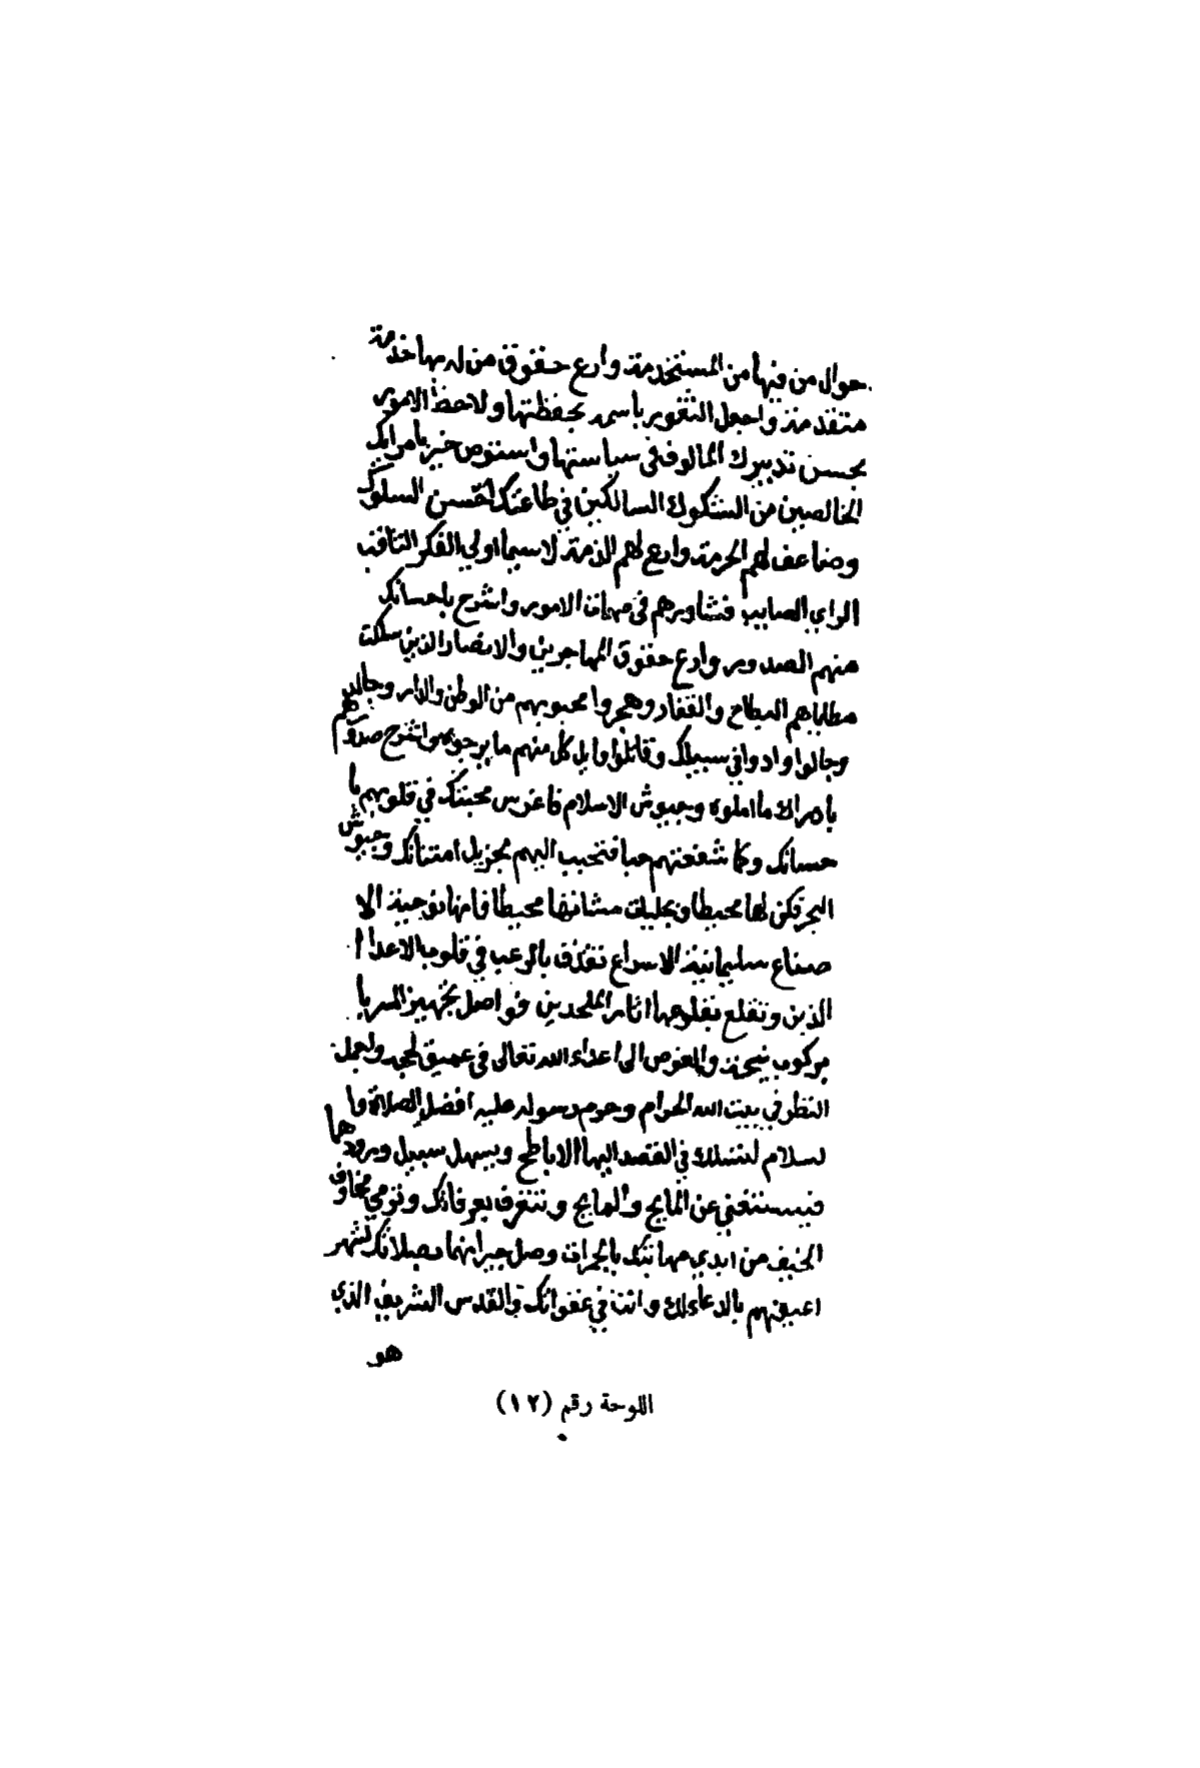 حوال من فيها من المستخدمة وارع حقوق من له بها خدمة
متقدمة واجعل الثغور باسرد بحفظتها ولاحظ الامور
بحسن تدبيرك المالوف في سياستها واستوص خيرا بامرايك
الخالصين من الشكوك السالكين في طاعتك احسن السلوك
وضاعف لهم الحرمة وارع لهم الذمة لاسيما اولي الفكر الثاقب
الراي الصايب فشاورهم في مهمات الامور واشرح باحسانك
منهم الصدور وارع حقوق المهاجرين والانصار الذين سلكت
مطاياهم البطاح والقفار وهجروا محبوبهم من الوطن والدار وجالد
وجالوا وادوا في سبيلك وقاتلوا وابل كل منهم ما يرجوه واشرح صدورهم
بادراك ما املوه وجيوش الاسلام فاغرس محبتك في قلوبهم با
حسانك وكما شغفتهم حبا فتحبب اليهم بجزيل امتنانك وجيوش
البحر فكن لها محيطا وبجليات مشانها محيطا فانها توجيه الا
صناع سليمانية الاسراع تقذف بالرعب في قلوب الاعداء ا
الذين وتقلع بقلوعها اثار الملحدين فواصل تجهيز السرايا
بركوب ثبجه والغوص الى اعداء الله تعالى في عميق لججه واجمل
النظر في بيت الله الحرام وحرم رسوله عليه افضل الصلاة وا
لسلام لتسلك في القصد اليها الاباطح ويسهل سبيل ورودها
فيستغني عن المايح والمايح وتتعرف بعرفانك وترمي مخاوف
الخيف من ايدي مهابتك بالجمرات وصل جيرانهما بصلاتك لتشهر
اعينهم بالدعاء لك وانت في غفواتك والقدس الشريف الذي
هو
اللوحة رقم (١٢)